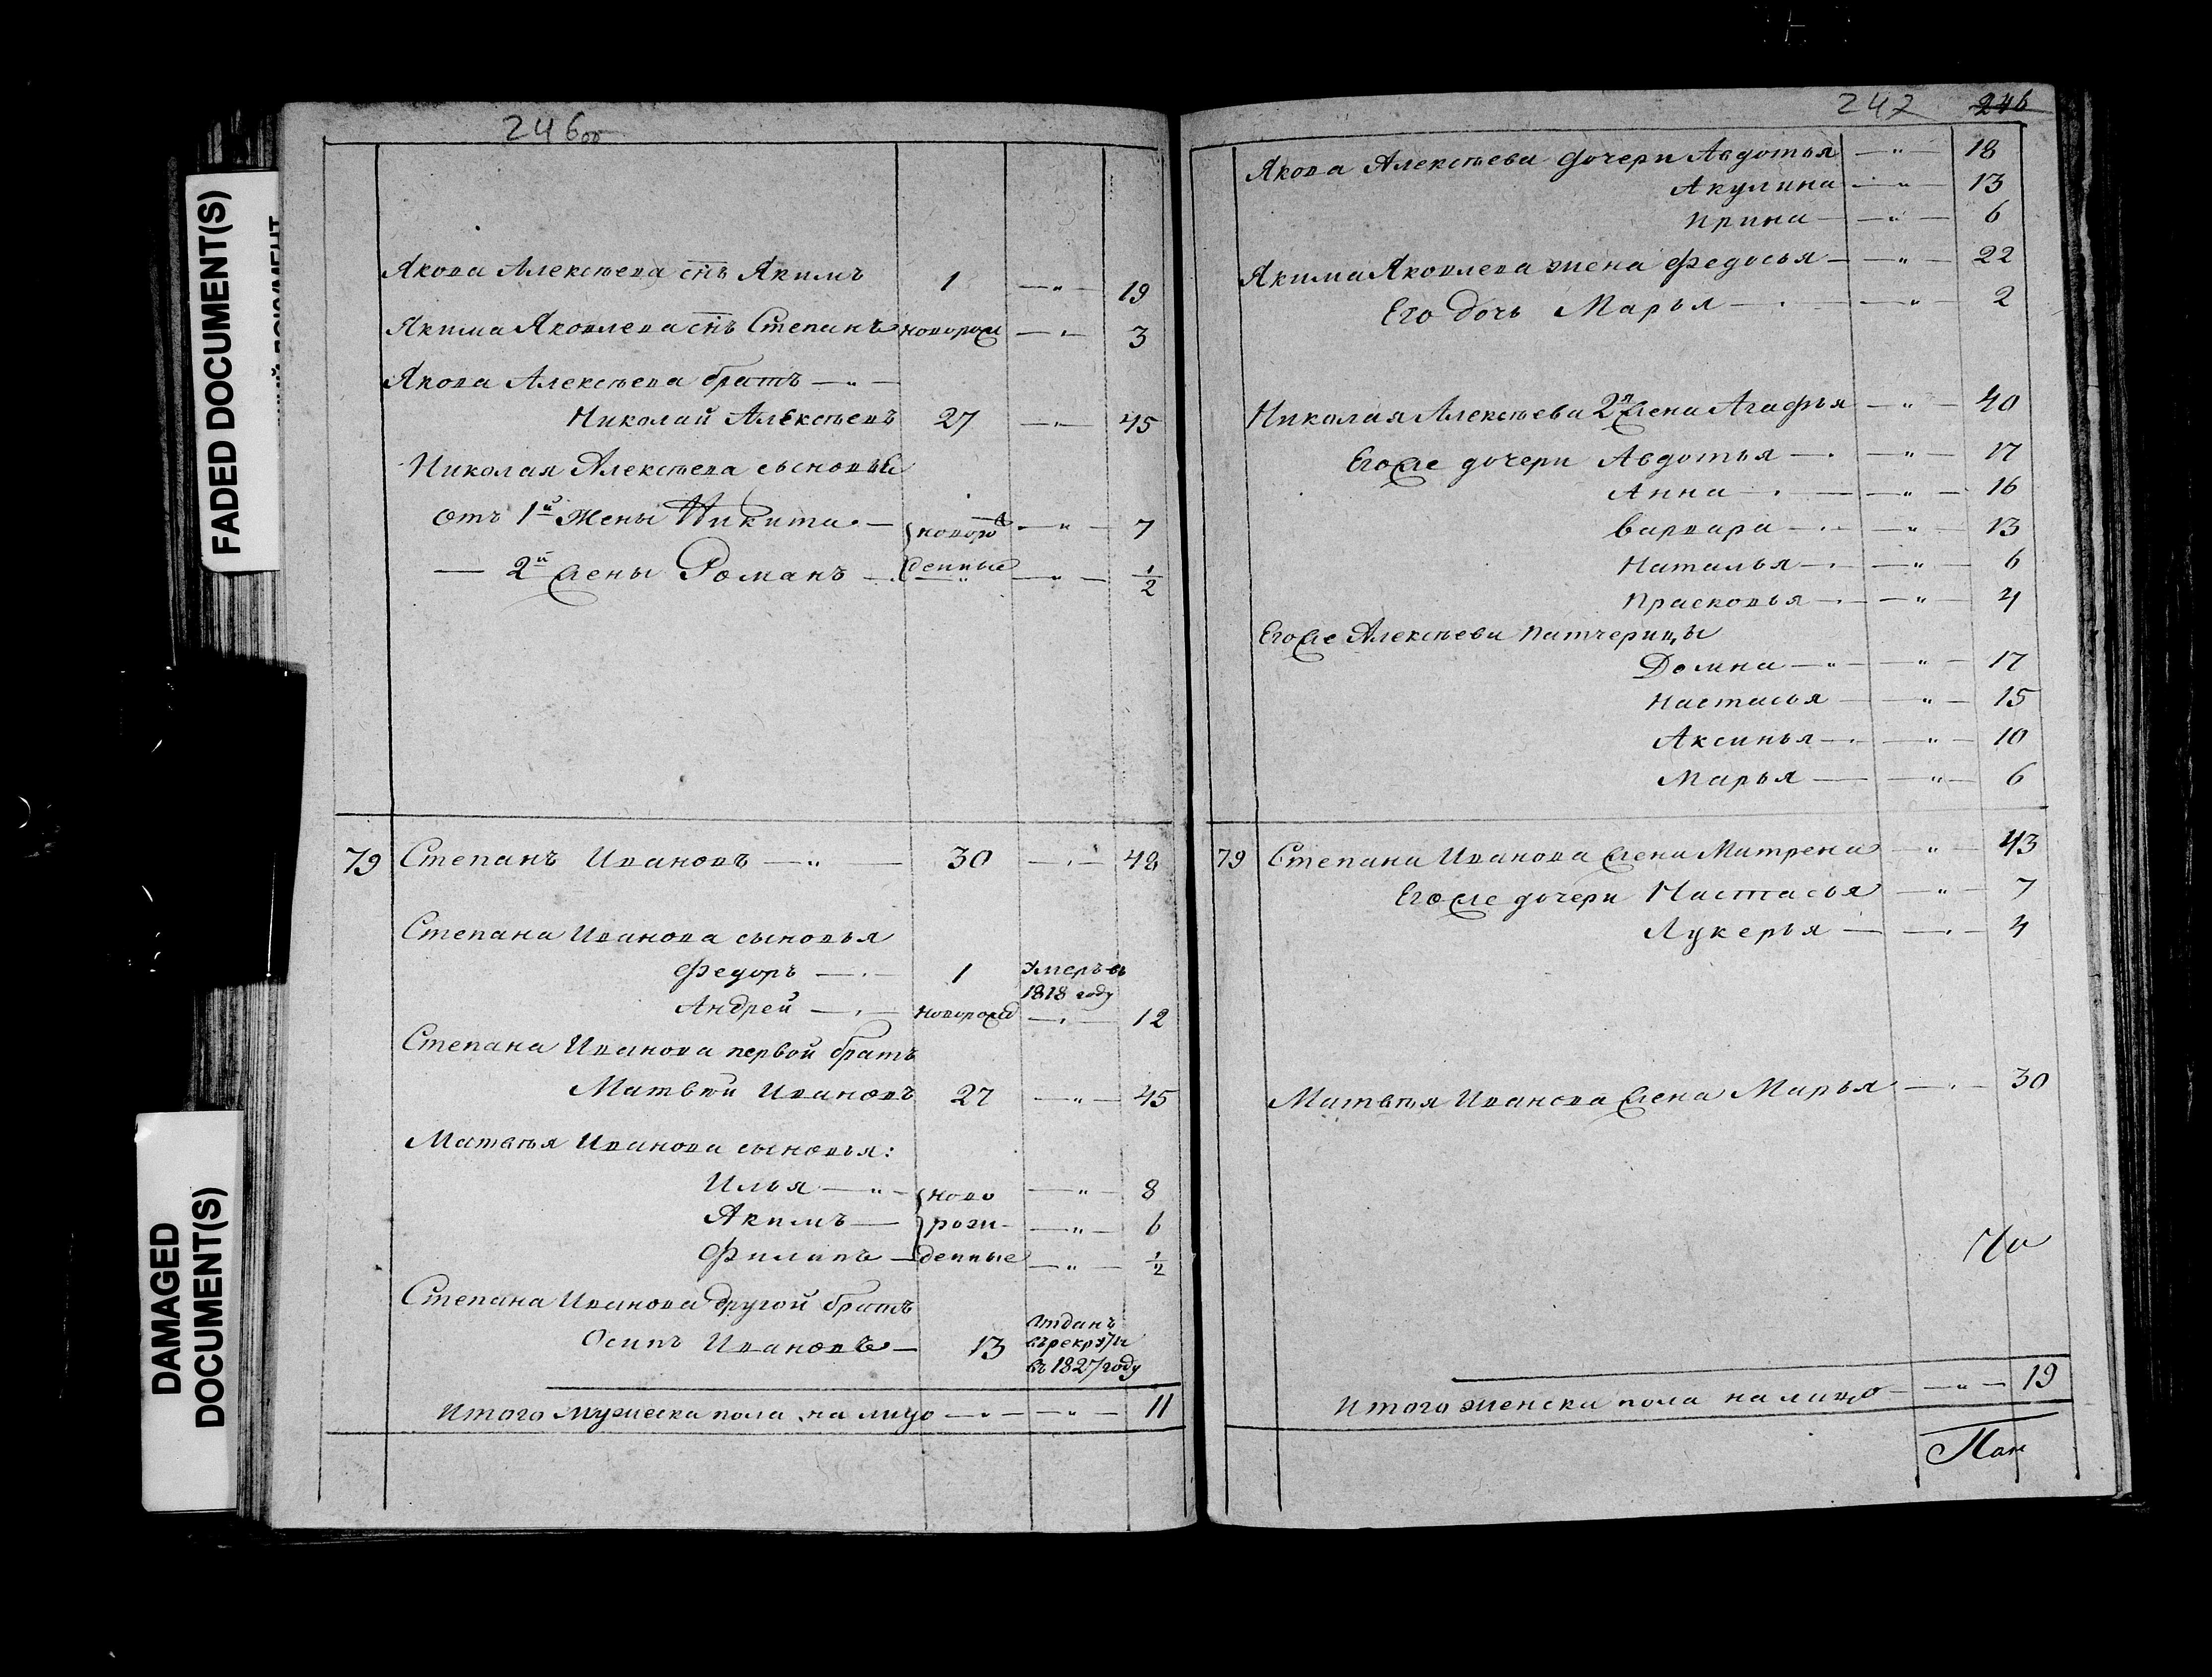 FADED DOCUMENT(S)
DAMAGED
DOCUMENT(S)
246об
Якова Алексѣева снъ Якимъ 1 — " — 19
Якима Яковлева снъ Степанъ новорож — " — 3
Якова Алексѣева братъ — " —
Николай Алексѣевъ 27 — " — 45
Николая Алексѣева сыновья
отъ 1й жены Никита — новоро — " — 7
— 2й жены Романъ — жденные — " — 1/2
79 Степанъ Ивановъ — " — 30 — " — 48
Степана Иванова сыновья
Федоръ — " — 1 умеръ въ
1818 году
Андрей — " — новорожд — " — 12
Степана Иванова первой братъ
Матвѣй Ивановъ 27 — " — 45
Матвѣя Иванова сыновья:
Илья — " — ново — " — 8
Якимъ — рож — " — 6
Филипъ — денные — " — 1/2
Степана Иванова другой братъ
отданъ
Осипъ Ивановъ — 13 въ рекруты
въ 1827 году
Итого мужеска пола на лицо — " — " — 11
247 246
Якова Алексѣева дочери Авдотья — " — 18
Акулина — " — 13
Ирина — " — 6
Якима Яковлева жена Федосья — " — 22
Его дочь Марья — " — 2
Николая Алексѣева 2я жена Агафья — " — 40
Егоже дочери Авдотья — " — 17
Анна — " — 16
Варвара — " — 13
Наталья — " — 6
Прасковья — " — 4
Егоже Алексѣева патчерицы
Домна — " — 17
Настасья — " — 15
Аксинья — " — 10
Марья — " — 6
79 Степана Иванова жена Матрена — " — 43
Егоже дочери Настасья — " — 7
Лукерья — " — 4
Матвѣя Иванова жена Марья — " — 30
Итого женска пола на лицо — " — 19